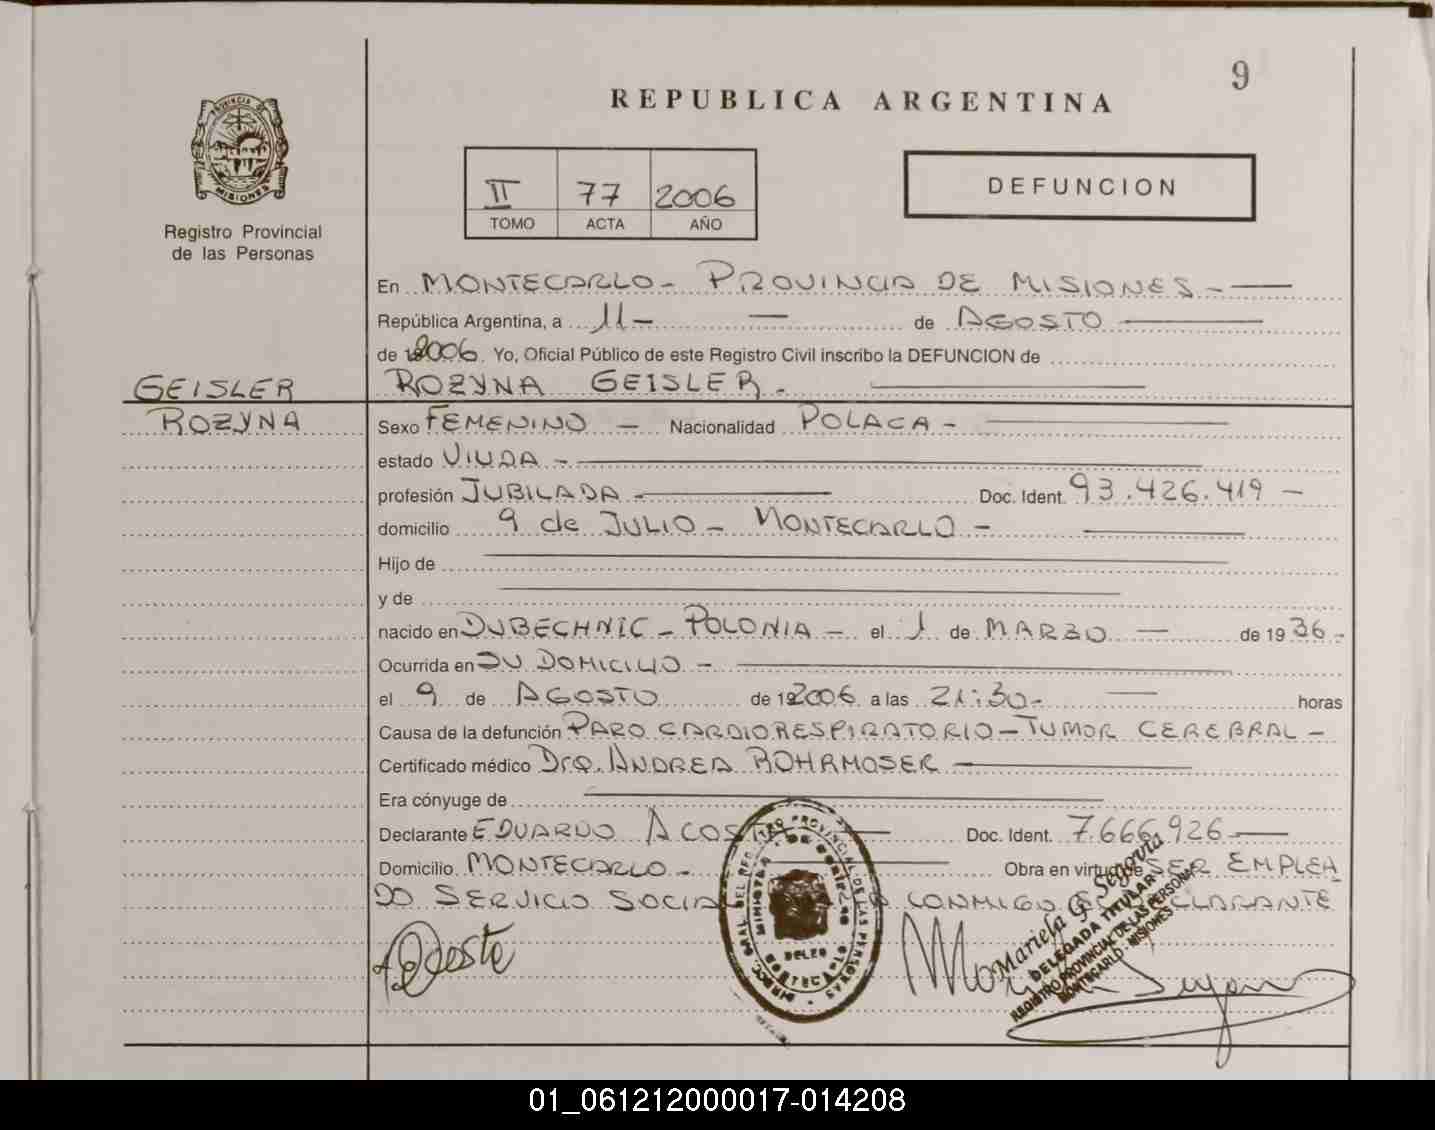 9
REPUBLICA ARGENTINA
PROVINCIA DE
MISIONES
Registro Provincial
de las Personas
II 77 2006
TOMO ACTA AÑO
DEFUNCION
En MONTECARLO - PROVINCIA DE MISIONES -
República Argentina, a 11 - de AGOSTO
de 2006. Yo, Oficial Público de este Registro Civil inscribo la DEFUNCION de
GEISLER ROZYNA GEISLER -
ROZYNA Sexo FEMENINO - Nacionalidad POLACA -
estado VIUDA -
profesión JUBILADA - Doc. Ident. 93.426.419 -
domicilio 9 de JULIO - MONTECARLO -
Hijo de
y de
nacido en DUBECHNIC - POLONIA - el 1 de MARZO - de 19 36 -
Ocurrida en SU DOMICILIO -
el 9 de AGOSTO de 2006 a las 21:30 - horas
Causa de la defunción PARO CARDIORESPIRATORIO - TUMOR CEREBRAL -
Certificado médico Dra. ANDREA ROHRMOSER
Era cónyuge de
Declarante EDUARDO ACOSTA Doc. Ident. 7.666.926
Domicilio MONTECARLO - Obra en virtud de SER EMPLEA
DO SERVICIO SOCIAL CONMIGO CLARANTE
Acosta
Mariela G. Segovia
DELEGADA TITULAR
REGISTRO PROVINCIAL DE LAS PERSONAS
MONTECARLO - MISIONES
01_061212000017-014208